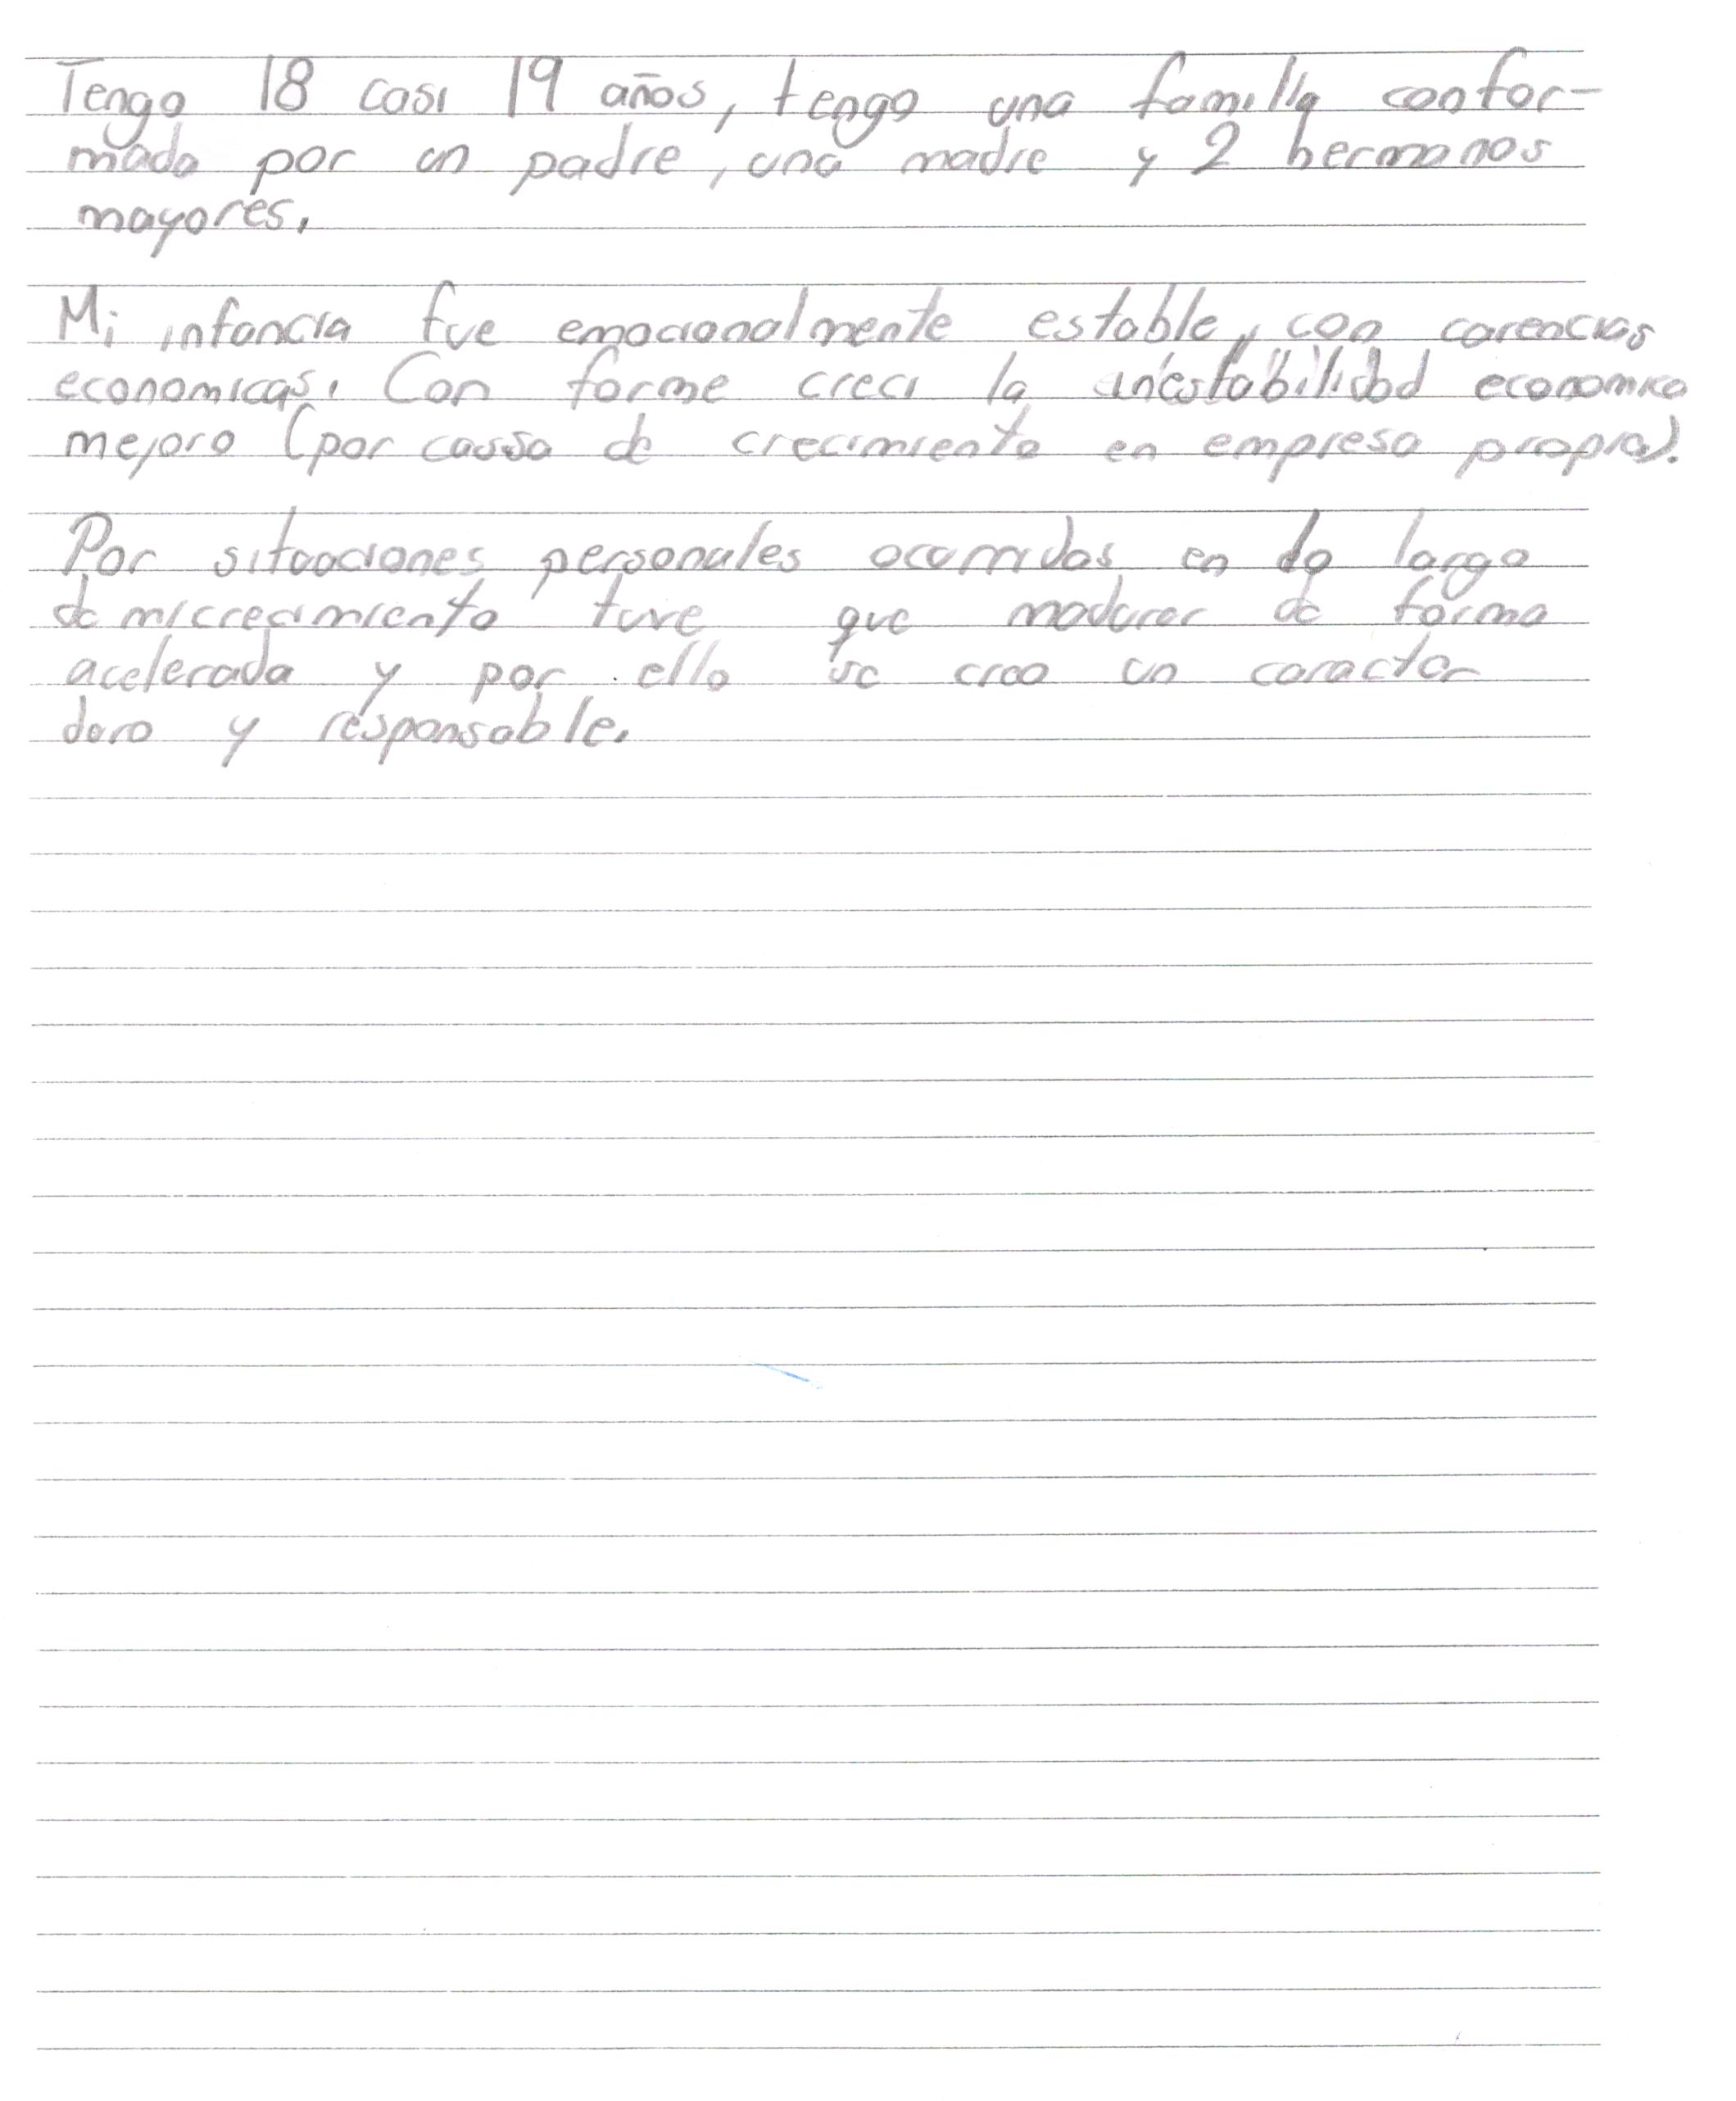 Tengo 18 casi 19 años, tengo una familia confor-
mada por un padre, una madre y 2 hermanos
mayores.
Mi infancia fue emocionalmente estable, con carencias
economicas. Con forme creci la inestabilidad economica
mejoro (por causa de crecimiento en empresa propia).
Por situaciones personales ocurridas en lo largo
de mi crecimiento tuve que madurar de forma
acelerada y por ello se creo un caracter
duro y responsable.